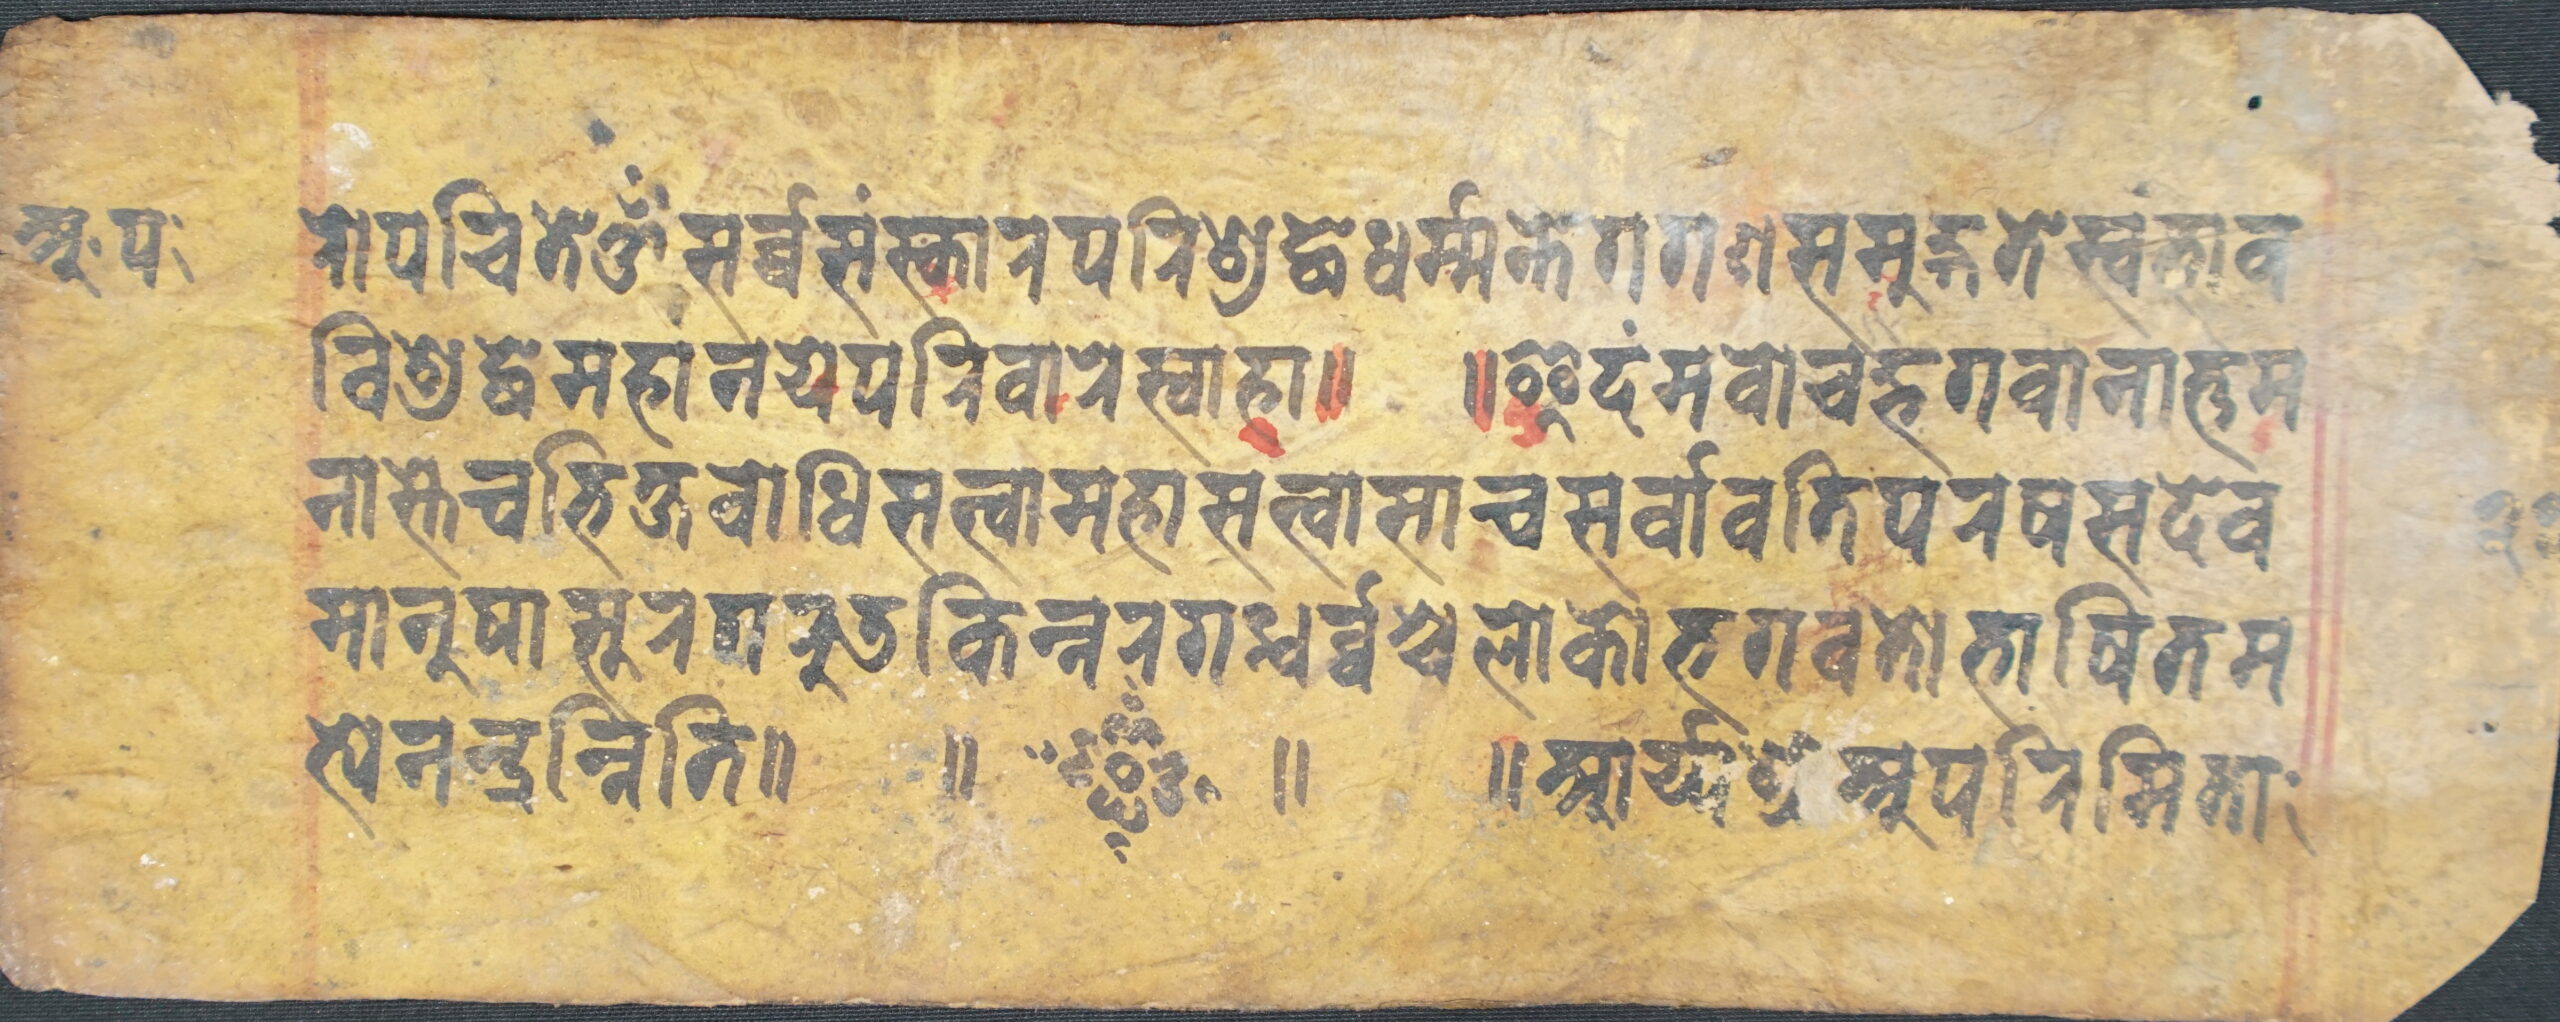 अपः
रोपचिते ॐ सर्ब्बसंस्कारपरिशुद्धधर्म्मतेगगणससुद्गतेस्वभाव
विशुद्धेमहांनयेपरिवारेस्वाहा॥ ॥इदंमवोचद्भगवानात्तम
नास्तेचभिक्षुबोधिसत्त्वामहासत्त्वासाचसर्वावतिपरषसदेव
मानुषासुरगरुडकिन्नरगन्धर्ब्बश्चलोकोभगवतोभाषितम
त्येनन्दन्निति॥ ॥ ॥ ॥आर्य्यश्रीअपरिमिताः